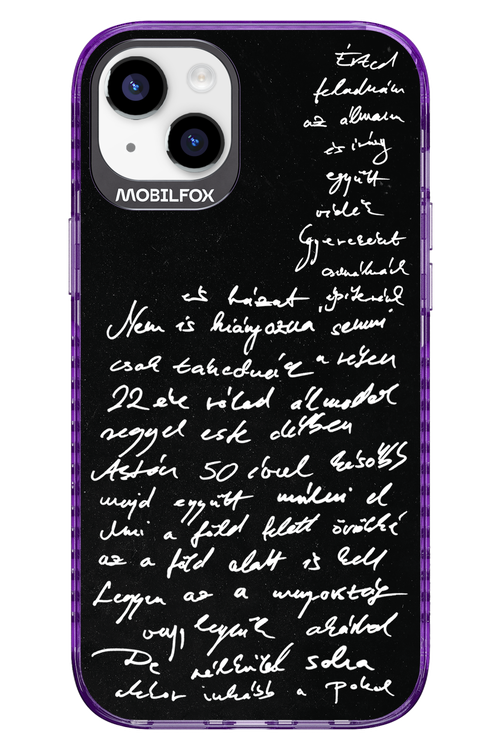 MOBILFOX
Érted
feladnám
az álmaim
és így
együtt
vidék
Gyerekeket
csinálnánk
és házat építenénk
Nem is hiányozna semmi
csak tehednék a réten
22 éve rólad álmodok
reggel este délben
Aztán 50 évvel később
majd együtt múlni el
Ami a föld felett örökké
az a föld alatt is kell
Legyen az a mennyország
vagy legyünk akárhol
De nélküled soha
akkor inkább a pokol